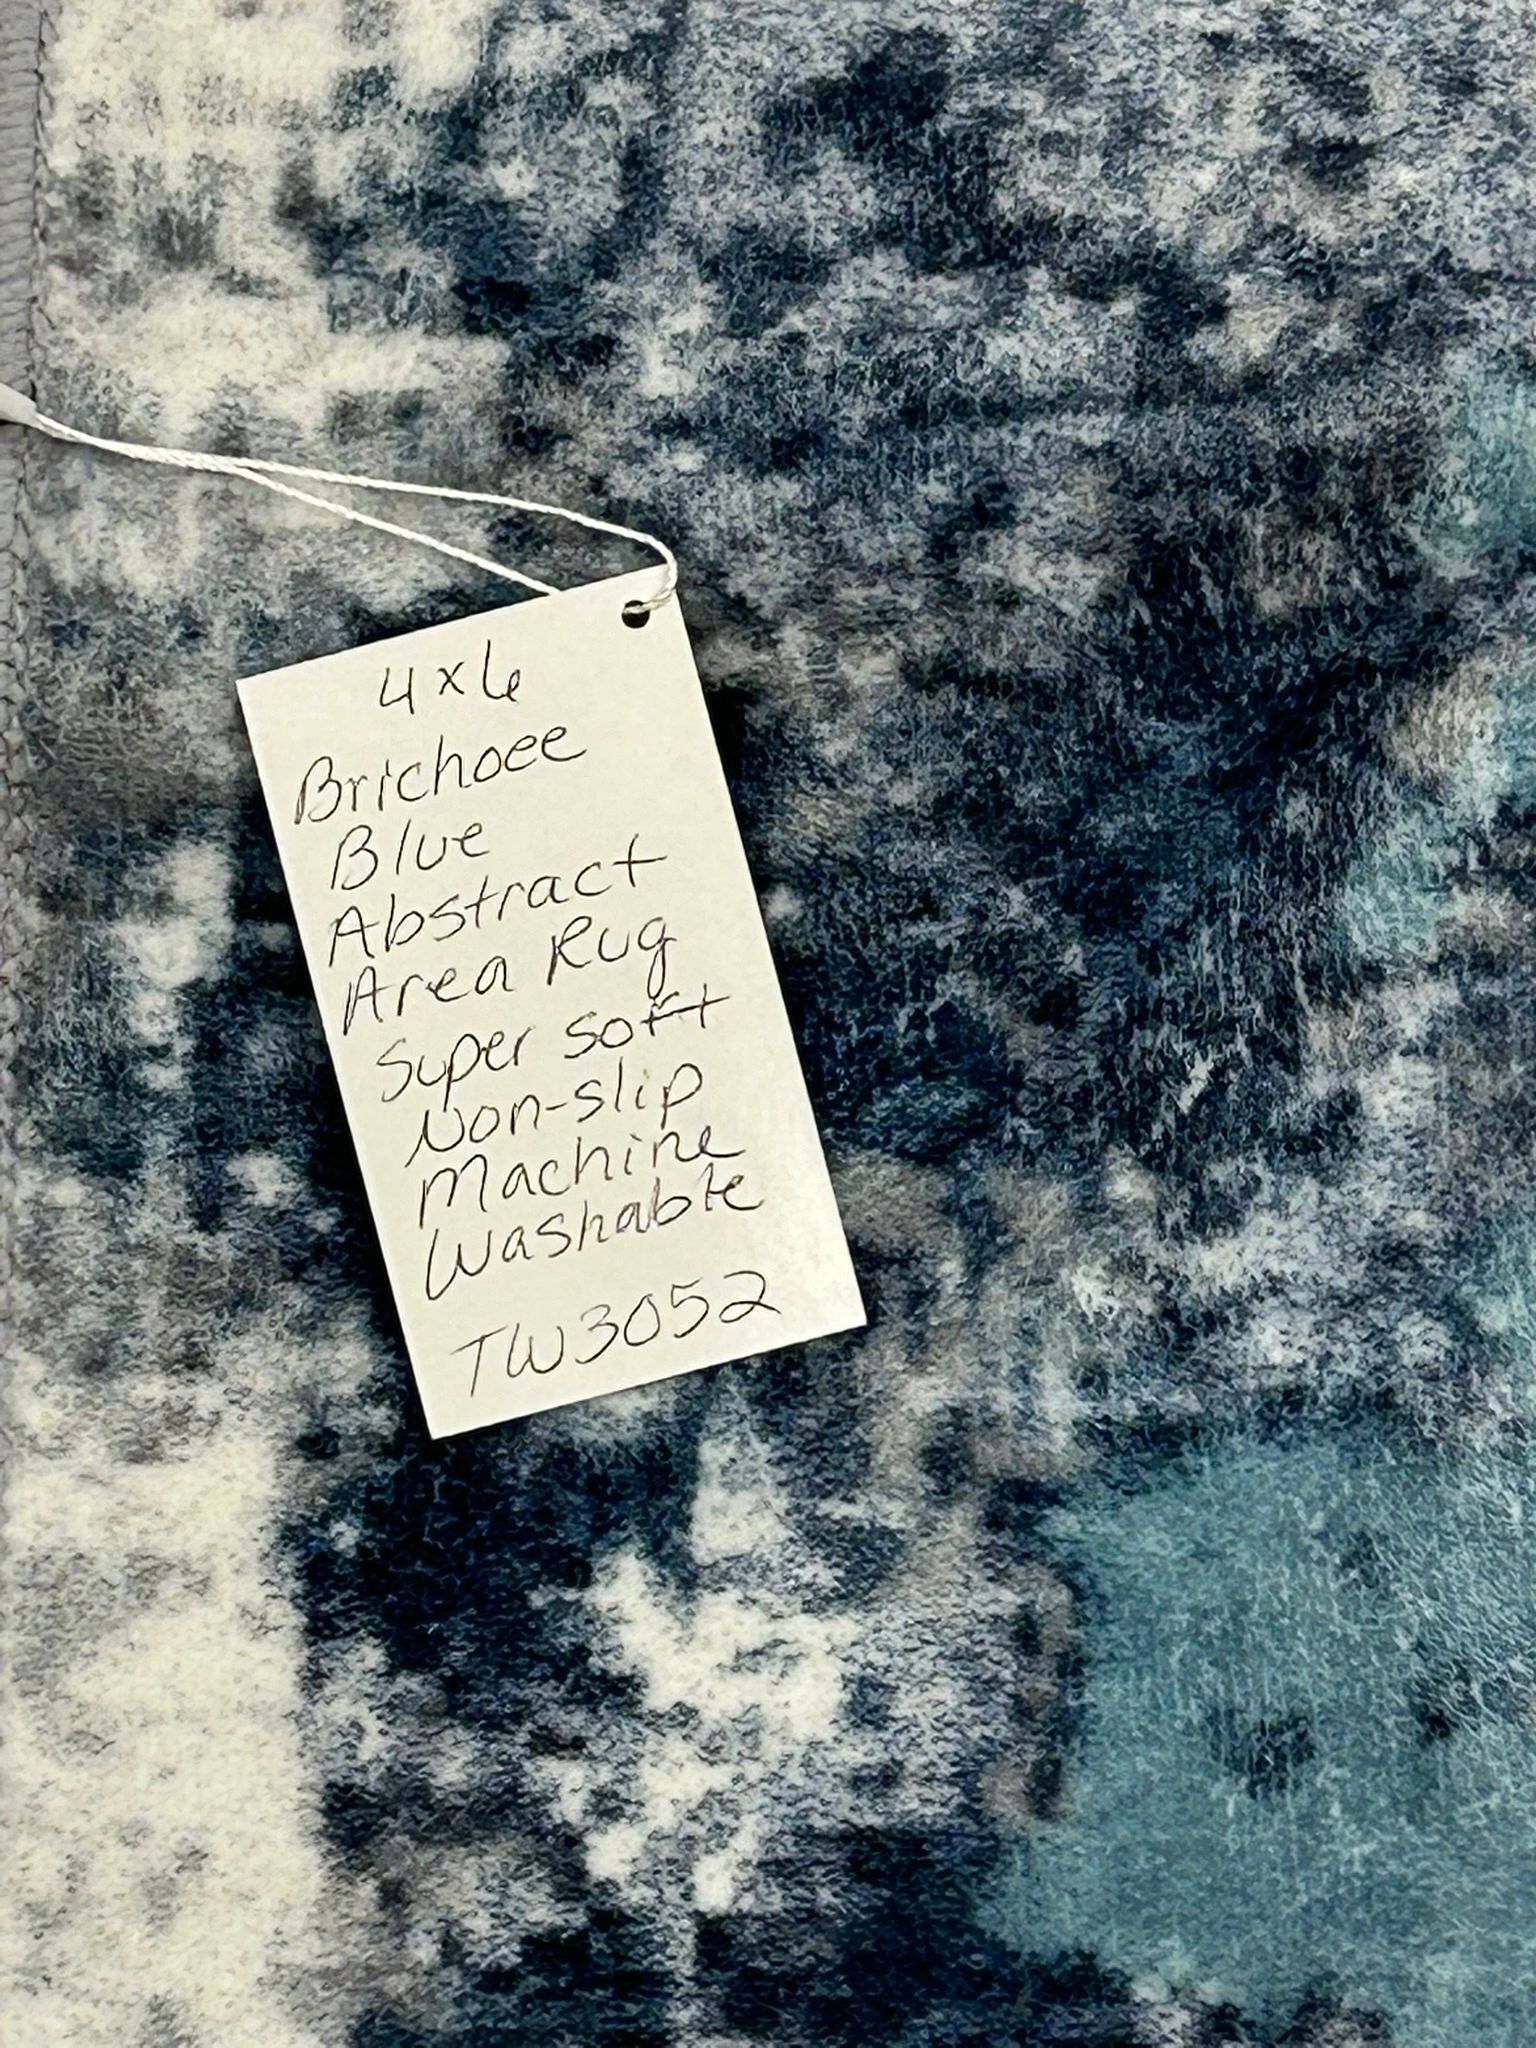 4x6
Brichoee
Blue
Abstract
Area Rug
Super soft
Non-slip
Machine
Washable
TW3052